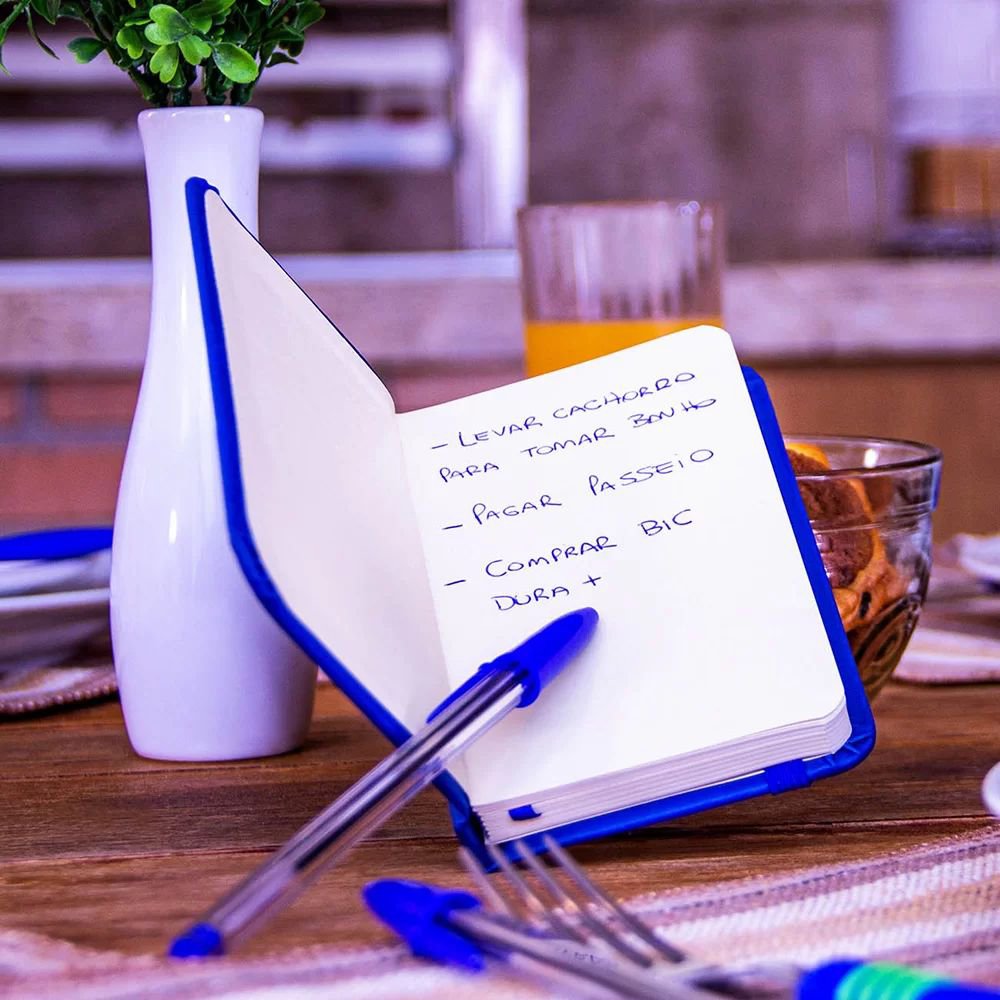 - LEVAR CACHORRO
PARA TOMAR BANHO
- PAGAR PASSEIO
- COMPRAR BIC
DURA +